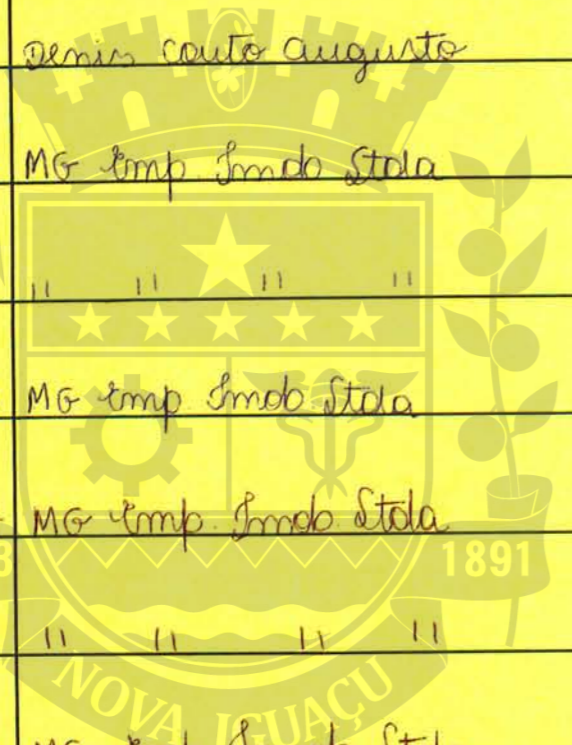 Denis Couto Augusto
MG Emp. Imob Ltda
" " " "
MG Emp Imob Ltda
MG Emp. Imob. Ltda
1891
" " " "
NOVA IGUAÇU
MG